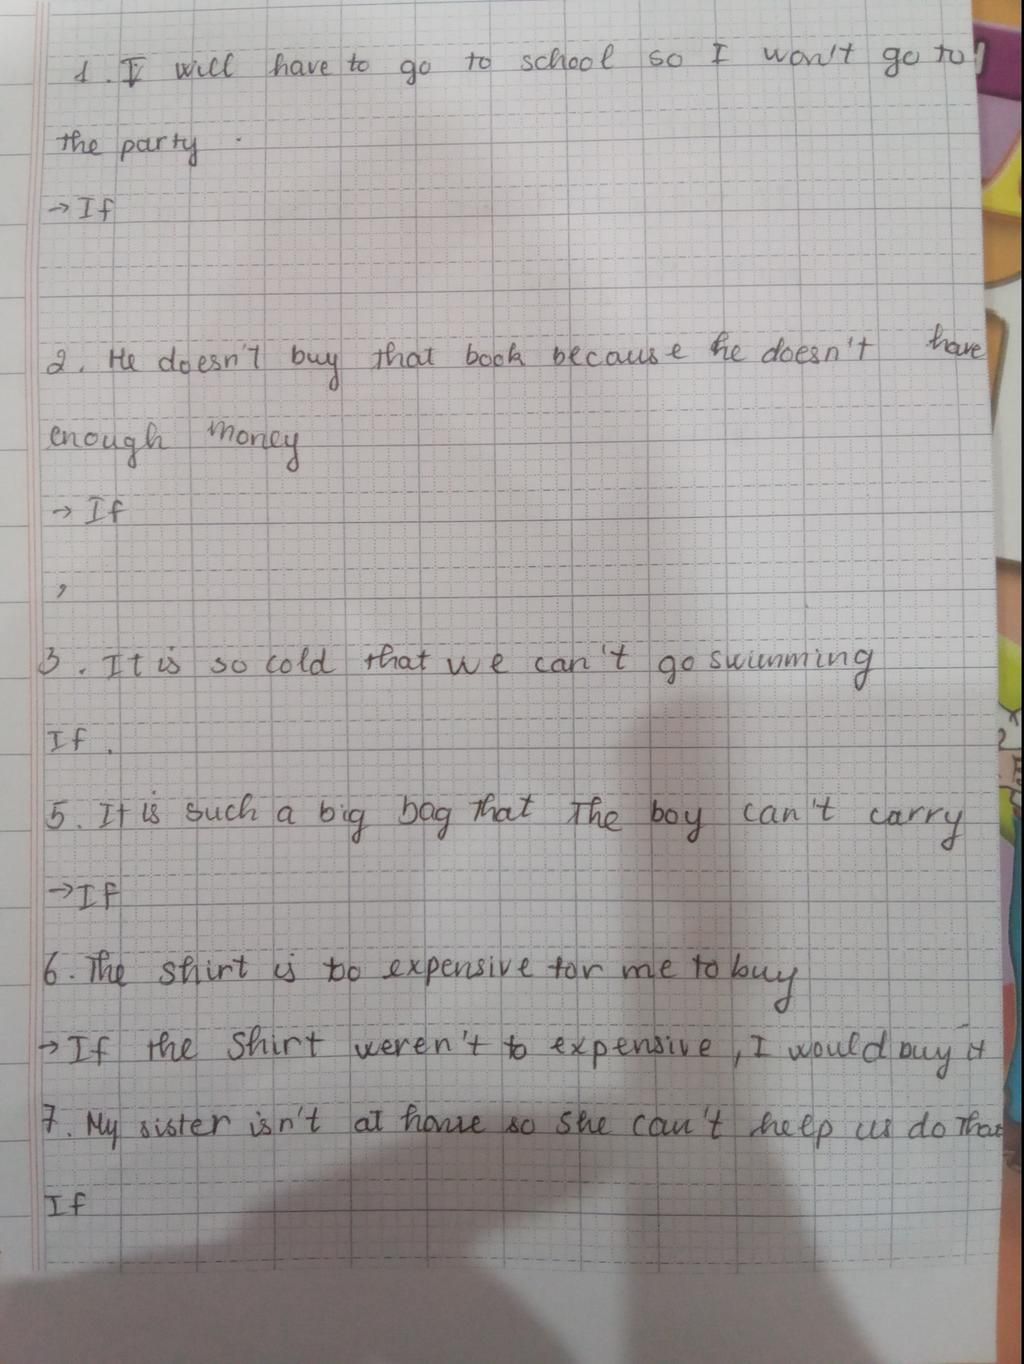 1. I will have to go to school so I won't go to
the party.
→ If
2. He doesn't buy that book because he doesn't have
enough money
→ If
,
3. It is so cold that we can't go swimming
If.
5. It is such a big bag that The boy can't carry
→ If
6. The shirt is too expensive for me to buy
→ If the Shirt weren't to expensive, I would buy it
7. My sister isn't at home so she can't help us do That
If